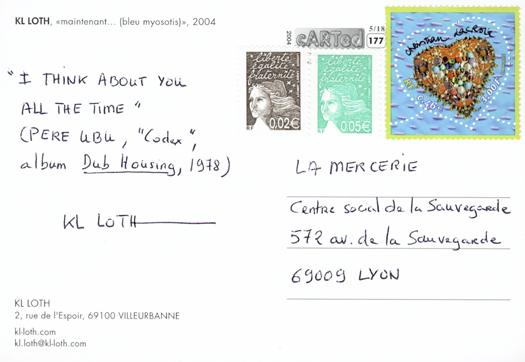 KL LOTH, «maintenant... (bleu myosotis)», 2004
2004
cARTed
5/18
177
liberté
égalité
fraternité
0.02€
liberté
égalité
fraternité
0.05€
christian lacroix
"I THINK ABOUT YOU
ALL THE TIME"
(PERE UBU, "Codex",
album Dub Housing, 1978)
KL LOTH
LA MERCERIE
Centre social de la Sauvegarde
572 av. de la Sauvegarde
69009 LYON
KL LOTH
2, rue de l'Espoir, 69100 VILLEURBANNE
kl-loth.com
kl.loth@kl-loth.com